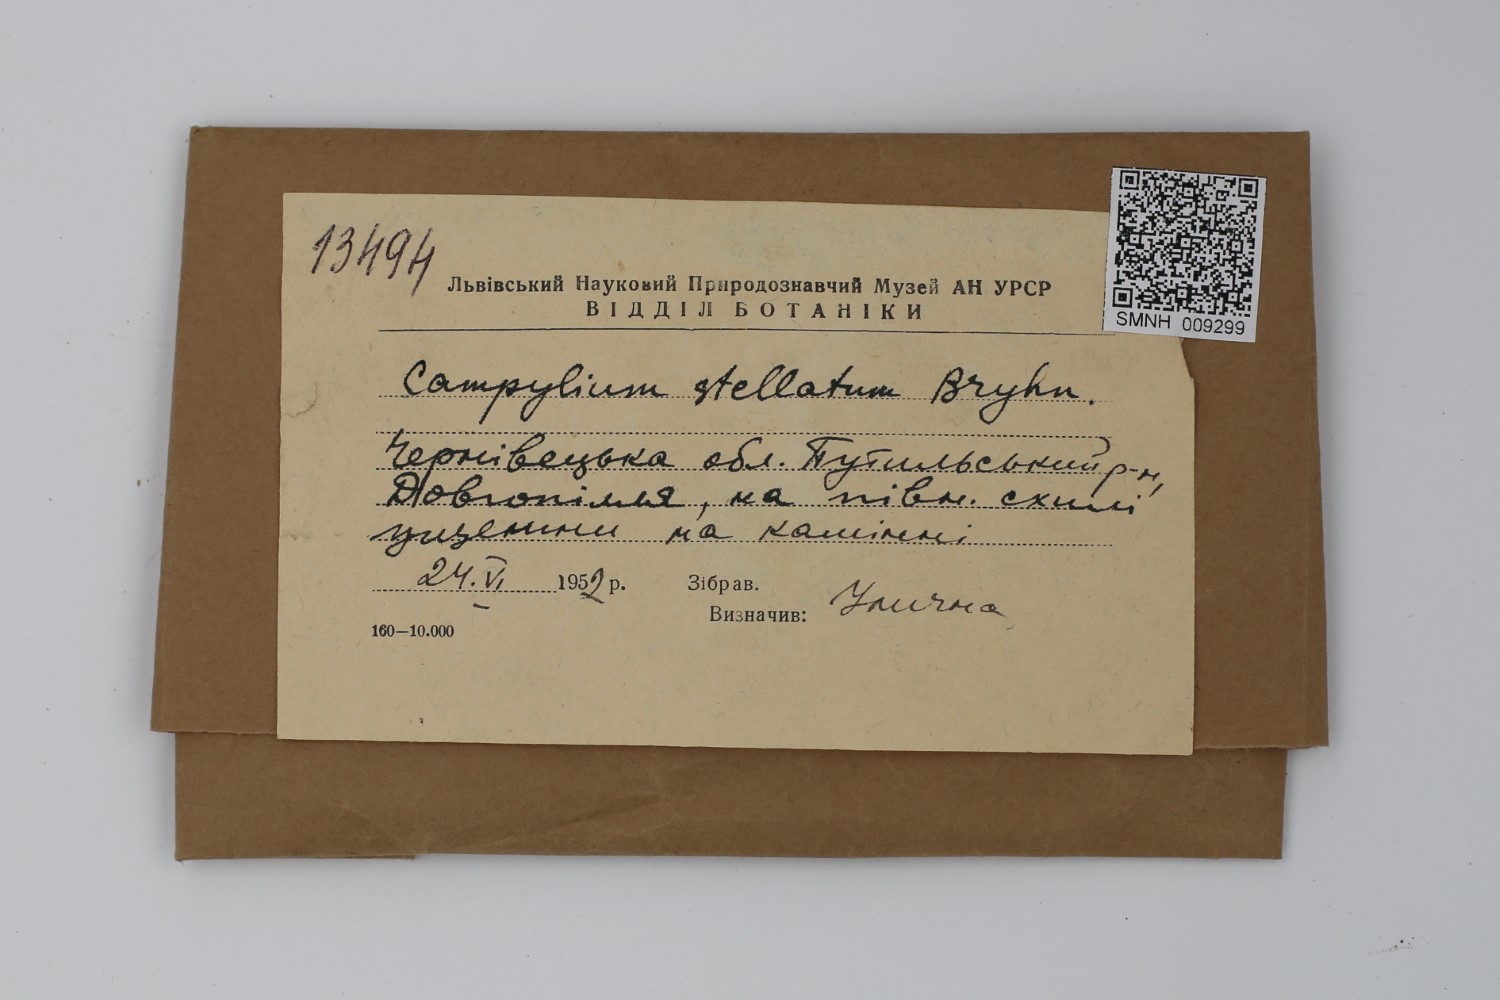 13494
Львівський Науковий Природознавчий Музей АН УРСР
ВІДДІЛ БОТАНІКИ
SMNH 009299
Campylium stellatum Bryhn.
Чернівецька обл. Путильський р-н,
Довгопілля, на півн. схилі
ущелини на камінні
24.VI 1952 р. Зібрав.
Визначив: Улична
160—10.000